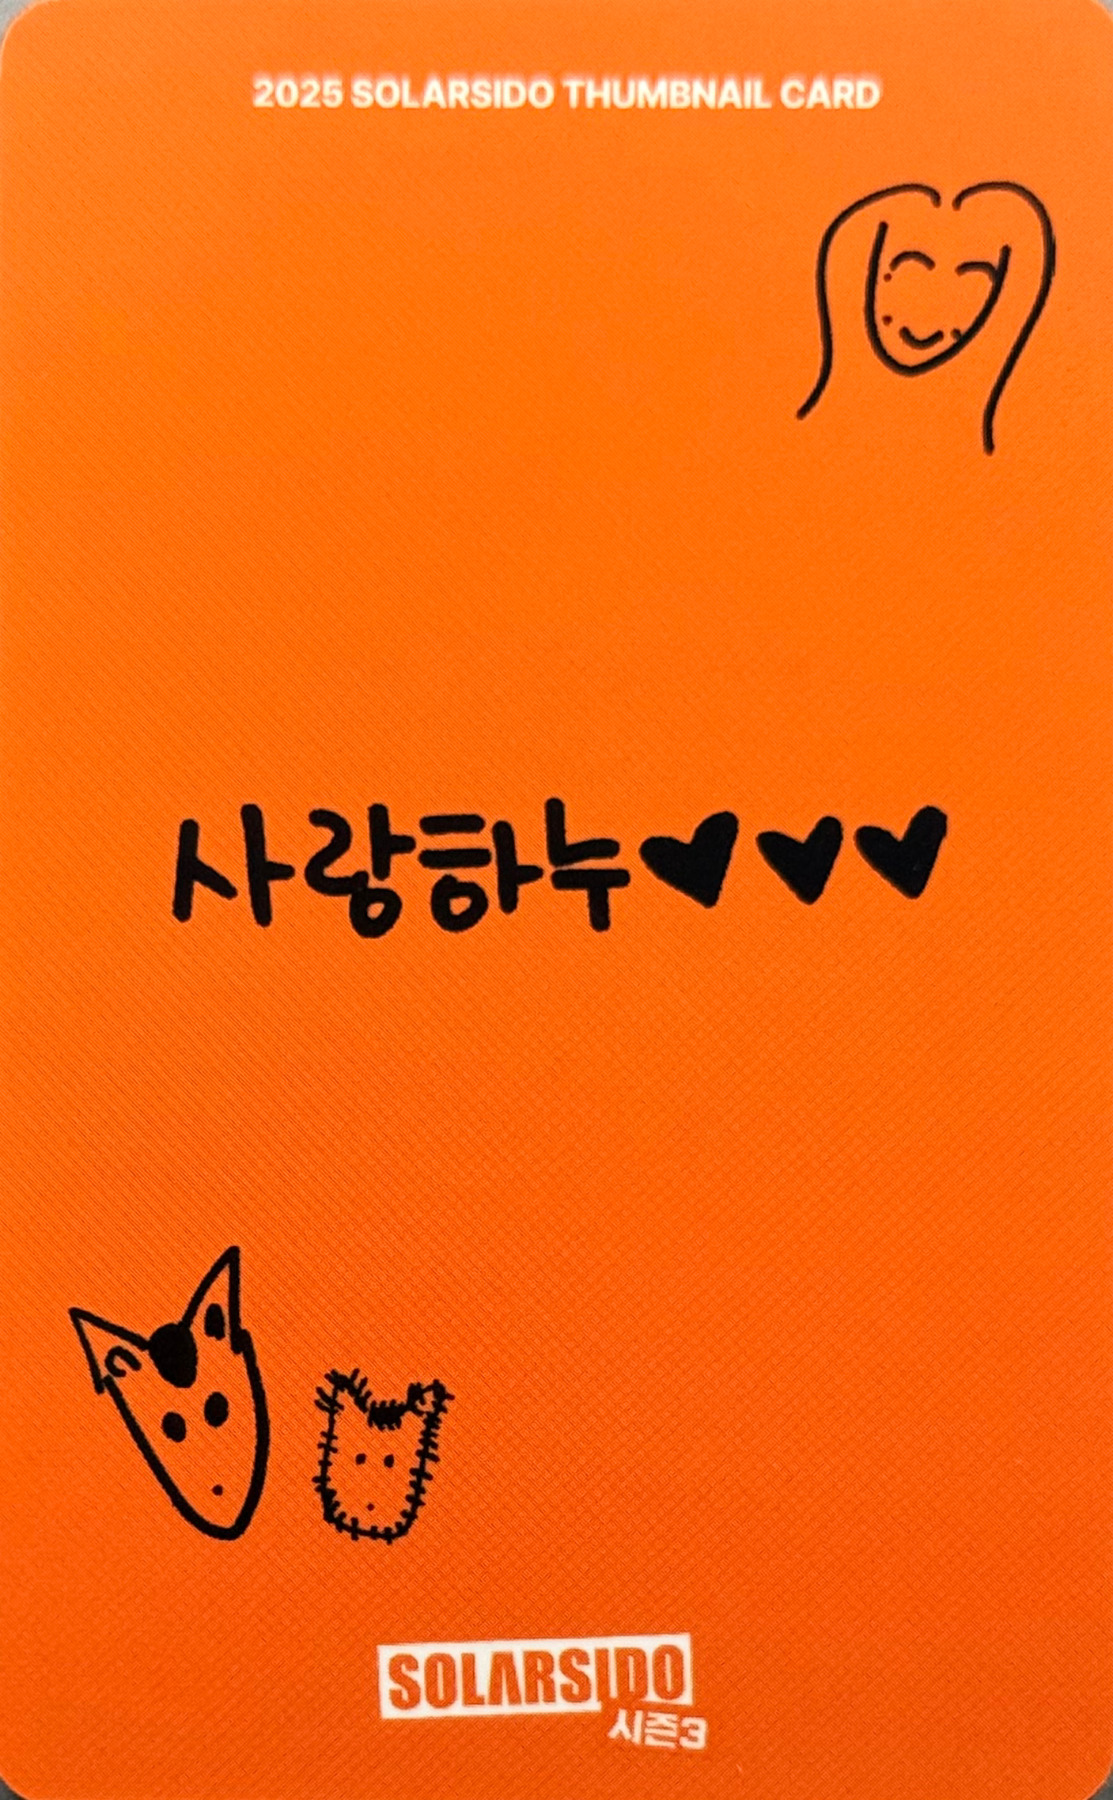 2025 SOLARSIDO THUMBNAIL CARD
사랑하누♥♥♥
SOLARSIDO
시즌3